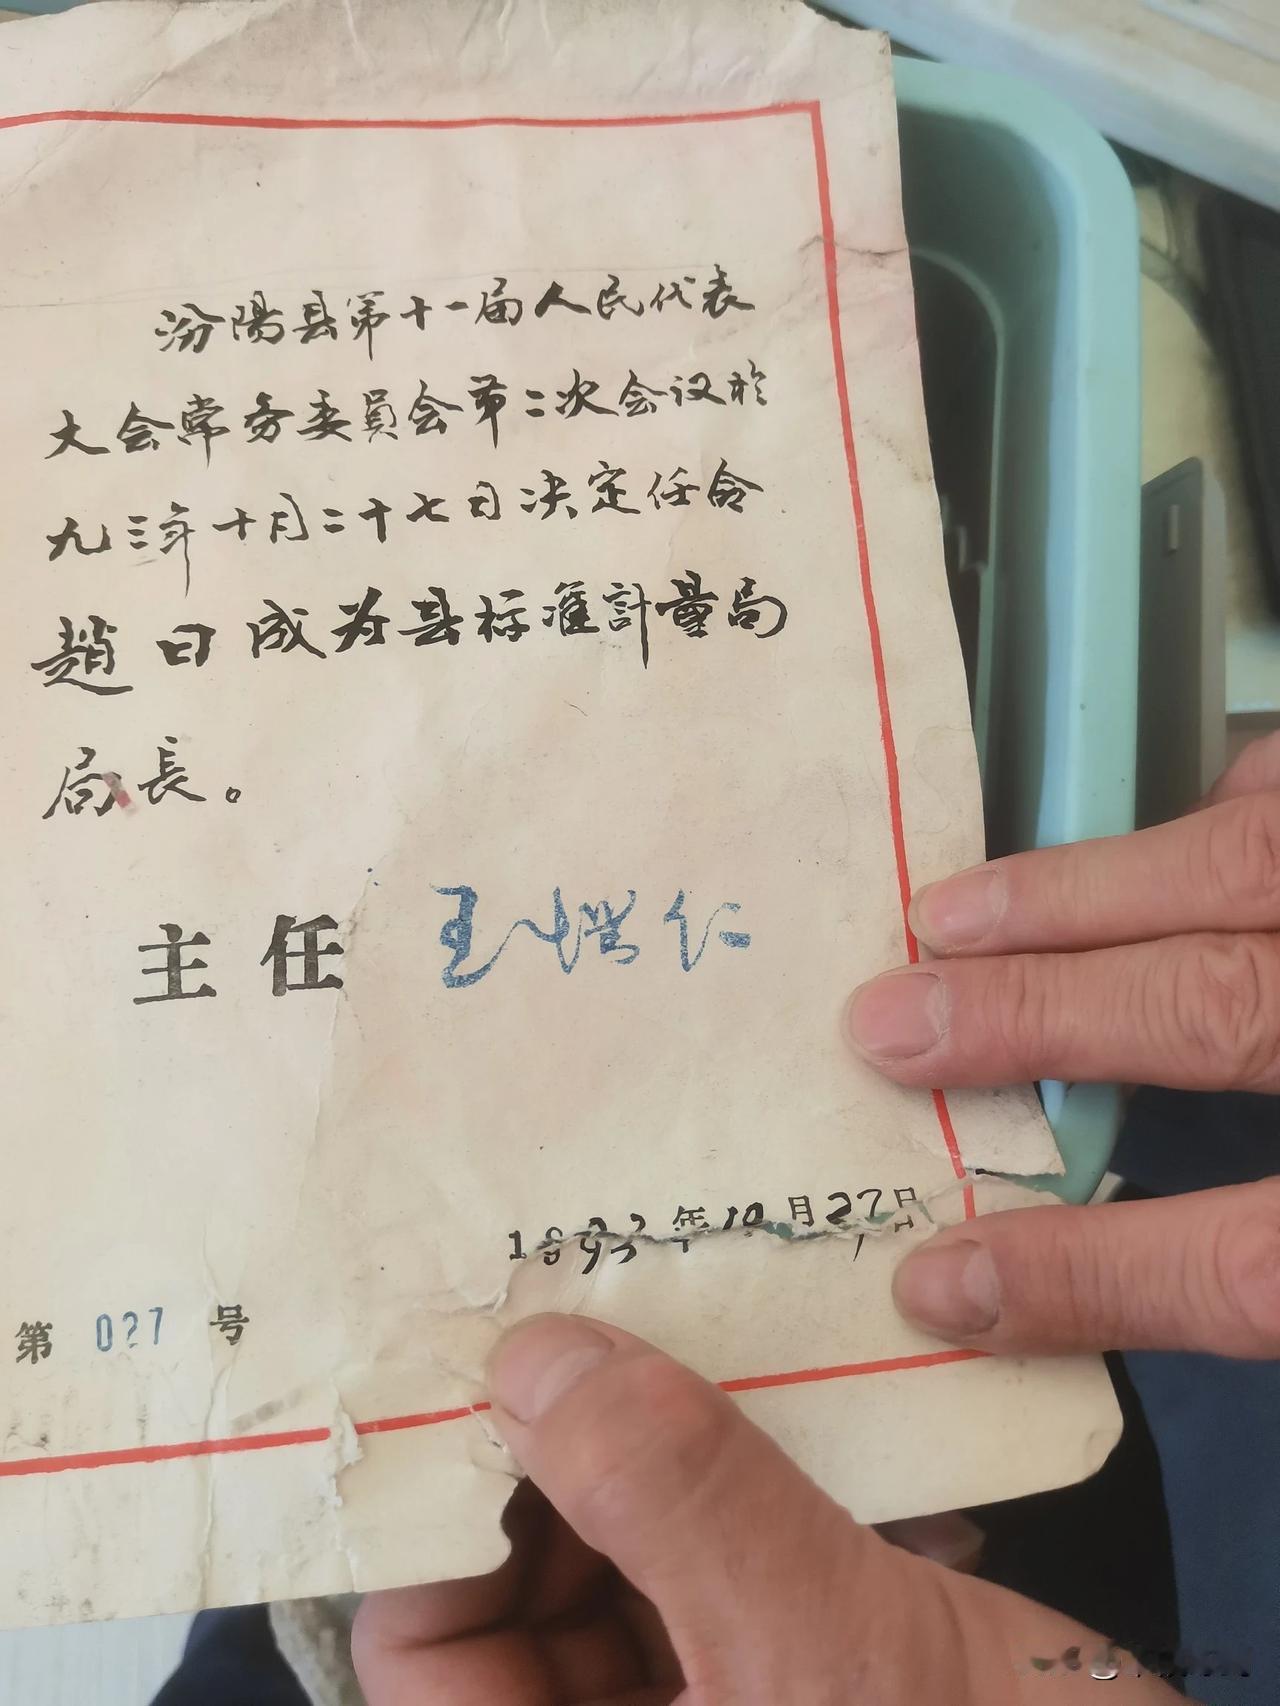 汾陽县第十一届人民代表
大会常务委員会第二次会议於
九三年十月二十七日决定任命
趙曰成为县标准計量局
局長。
主任 王 仁
1993年10月27日
第 027 号